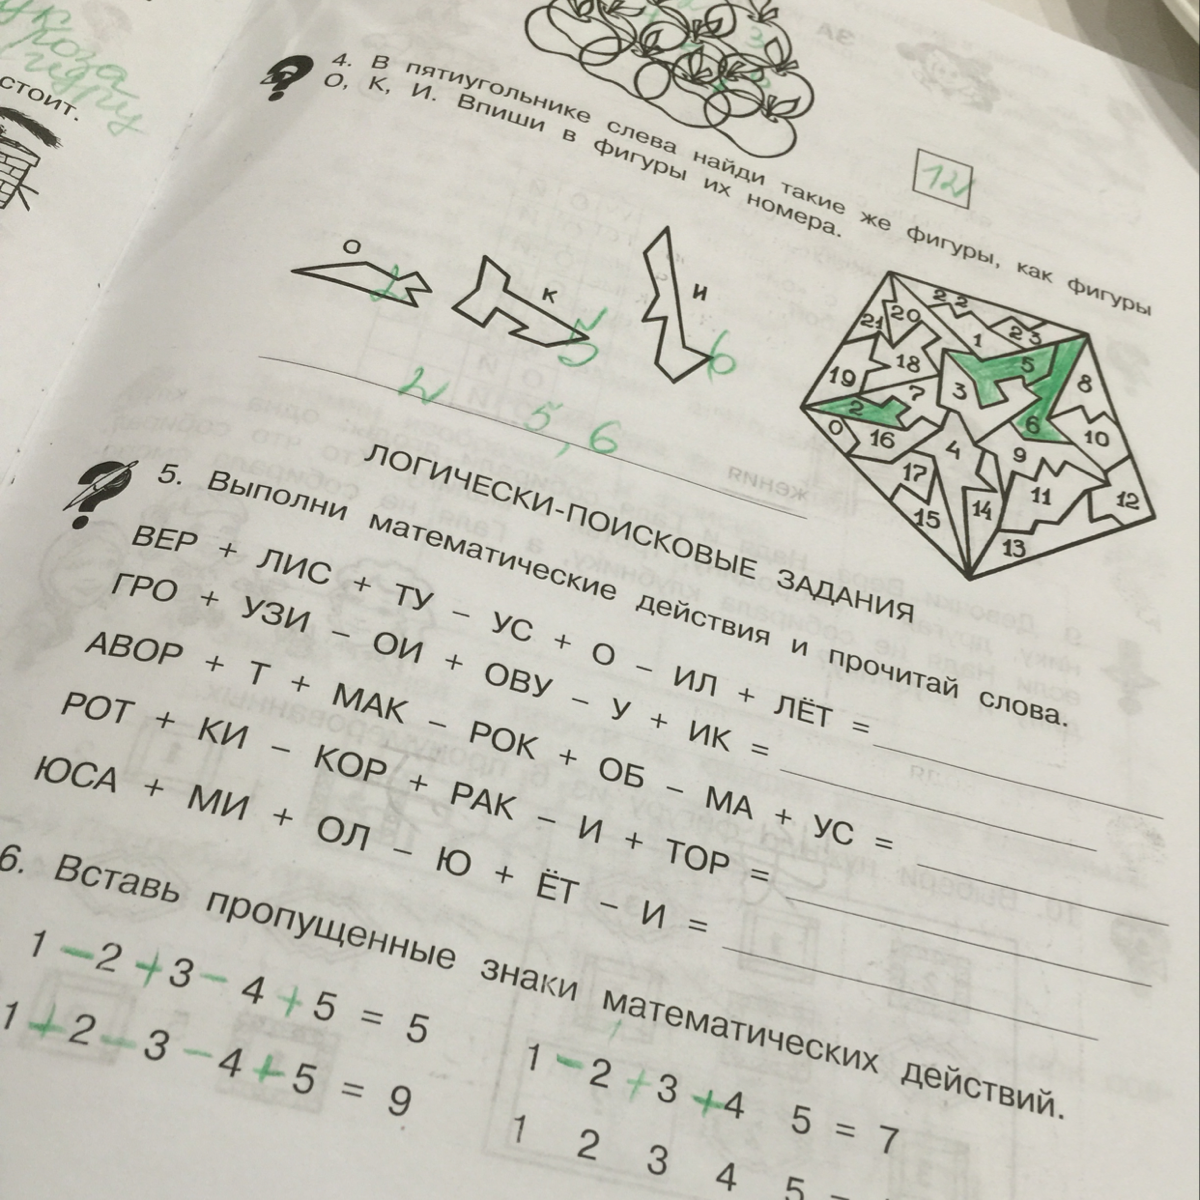 указа
гидру
СТОИТ.
ЗА
3
12
4. В ПЯТИУГОЛЬНИКЕ СЛЕВА НАЙДИ ТАКИЕ ЖЕ ФИГУРЫ, КАК ФИГУРЫ
О, К, И. ВПИШИ В ФИГУРЫ ИХ НОМЕРА.
О 2
К 5
И 6
22 23 21 20 1 5 8 18 3 19 7 2 6 10 0 16 4 9 17 11 12 15 14 13
2 5, 6
ЛОГИЧЕСКИ-ПОИСКОВЫЕ ЗАДАНИЯ
5. Выполни математические действия и прочитай слова.
ВЕР + ЛИС + ТУ – УС + О – ИЛ + ЛЁТ =
ГРО + УЗИ – ОИ + ОВУ – У + ИК =
АВОР + Т + МАК – РОК + ОБ – МА + УС =
РОТ + КИ – КОР + РАК – И + ТОР =
ЮСА + МИ + ОЛ – Ю + ЁТ – И =
6. Вставь пропущенные знаки математических действий.
1 – 2 + 3 – 4 + 5 = 5
1 – 2 + 3 + 4 5 = 7
1 + 2 – 3 – 4 + 5 = 9
1 2 3 4 5 =